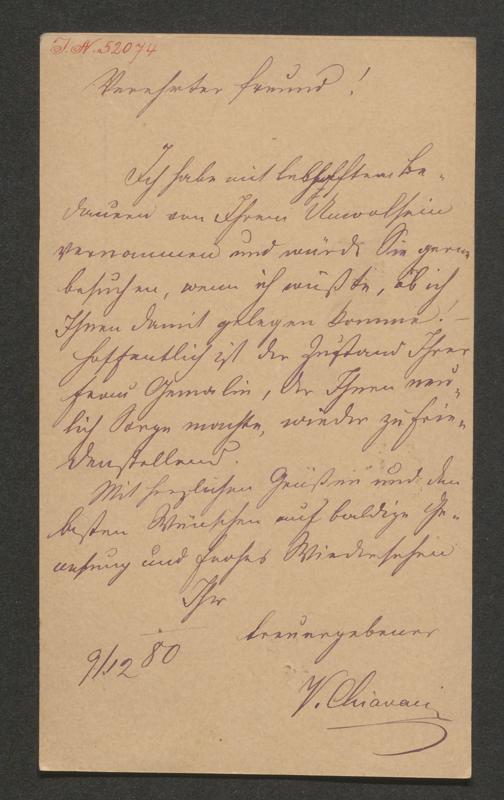 I. N. 52074
Verehrter Freund!
Ich habe mit lebhaftem Be-
dauern von Ihrem Unwolsein
vernommen und würde Sie gern
besuchen, wenn ich wüßte, ob ich
Ihnen damit gelegen komme! –
Hoffentlich ist der Zustand Ihrer
Frau Gemalin, der Ihnen neu-
lich Sorge machte, wieder zufrie-
denstellend.
Mit herzlichen Grüßen und den
besten Wünschen auf baldige Ge-
nesung und frohes Wiedersehen
Ihr
treuergebener
9/12 80
V. Chiavacci